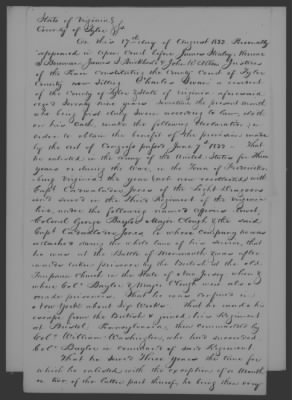 State of Virginia }
County of Tyler } ss
On this 17th day of August 1832 Personally
appeared in Open Court before James
&
of the Peace constituting the County Court of Tyler
County now sitting Charles a resident
of the County of Tyler & State of Virginia aforesaid
aged Seventy nine years the present month
who being first duly Sworn according to law, doth
on his Oath make the following declaration in
order to obtain the benefit of the provision made
by the act of Congress passed June 7th 1832 - That
he enlisted in the army of the United States for three
years or during the War, in the Town of
being Virginia the year not recollected with
Capt. Jones of the Light Dragoons
and served in the Third Regiment of the Virginia
line, under the following named Officers
Colonel George Baylor Major Clough & the said
Capt Jones to whose Company he was
attached during the whole time of his service, that
he was at the Battle of Monmouth, & was after
wards taken prisoner by the British at the old
Church in the State of New Jersey when &
where Col. Baylor & Major Clough were also
made prisoners. That he was confined in
New York about Six Weeks. That he made his
escape from the British & joined his Regiment
at Bristol, Pennsylvania, then commanded by
Col. William Washington, who had succeeded
Col. Baylor in command of said Regiment
That he served Three Years the time for
which he enlisted with the exception of a Month
or two of the latter part thereof, he being then very